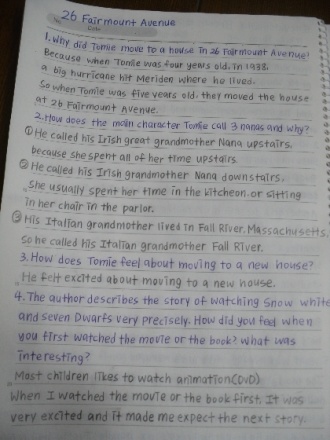 26 Fairmount Avenue
No.
Date
1. Why did Tomie move to a house in 26 Fairmount Avenue?
Because when Tomie was four years old, in 1938,
a big hurricane hit Meriden where he lived.
So when Tomie was five years old, they moved the house
at 26 Fairmount Avenue.
2. How does the main character Tomie call 3 nanas and why?
① He called his Irish great grandmother Nana upstairs,
because she spent all of her time upstairs.
② He called his Irish grandmother Nana downstairs.
She usually spent her time in the kitcheon, or sitting
in her chair in the parlor.
③ His Italian grandmother lived in Fall River, Massachusetts.
So he called his Italian grandmother Fall River.
3. How does Tomie feel about moving to a new house?
He felt excited about moving to a new house.
4. The author describes the story of watching Snow white
and seven Dwarfs very precisely. How did you feel when
you first watched the movie or the book? What was
interesting?
Most children likes to watch animation(DVD).
When I watched the movie or the book first, It was
very excited and it made me expect the next story.